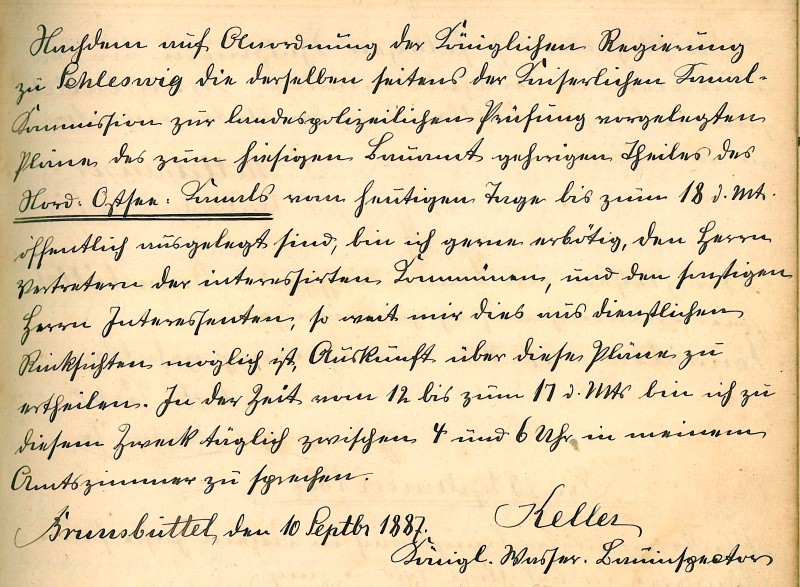 Nachdem auf Anordnung der Königlichen Regierung
zu Schleswig die derselben seitens der Kaiserlichen Kanal-
Kommission zur landespolizeilichen Prüfung vorgelegten
Pläne des zum hiesigen Bauamt gehörigen Theiles des
Nord-Ostsee-Kanals vom heutigen Tage bis zum 18 d. Mt.
öffentlich ausgelegt sind, bin ich gerne erbötig, den Herrn
Vertretern der interessirten Kommünen, und den sonstigen
Herrn Interessenten, so weit mir dies aus dienstlichen
Rücksichten möglich ist, Auskunft über diese Pläne zu
ertheilen. In der Zeit vom 12 bis zum 17 d. Mts bin ich zu
diesem Zweck täglich zwischen 4 und 6 Uhr in meinem
Amtszimmer zu sprechen.
Brunsbüttel, den 10 Septbr 1887.
Keller
Königl. Wasser-Bauinspector